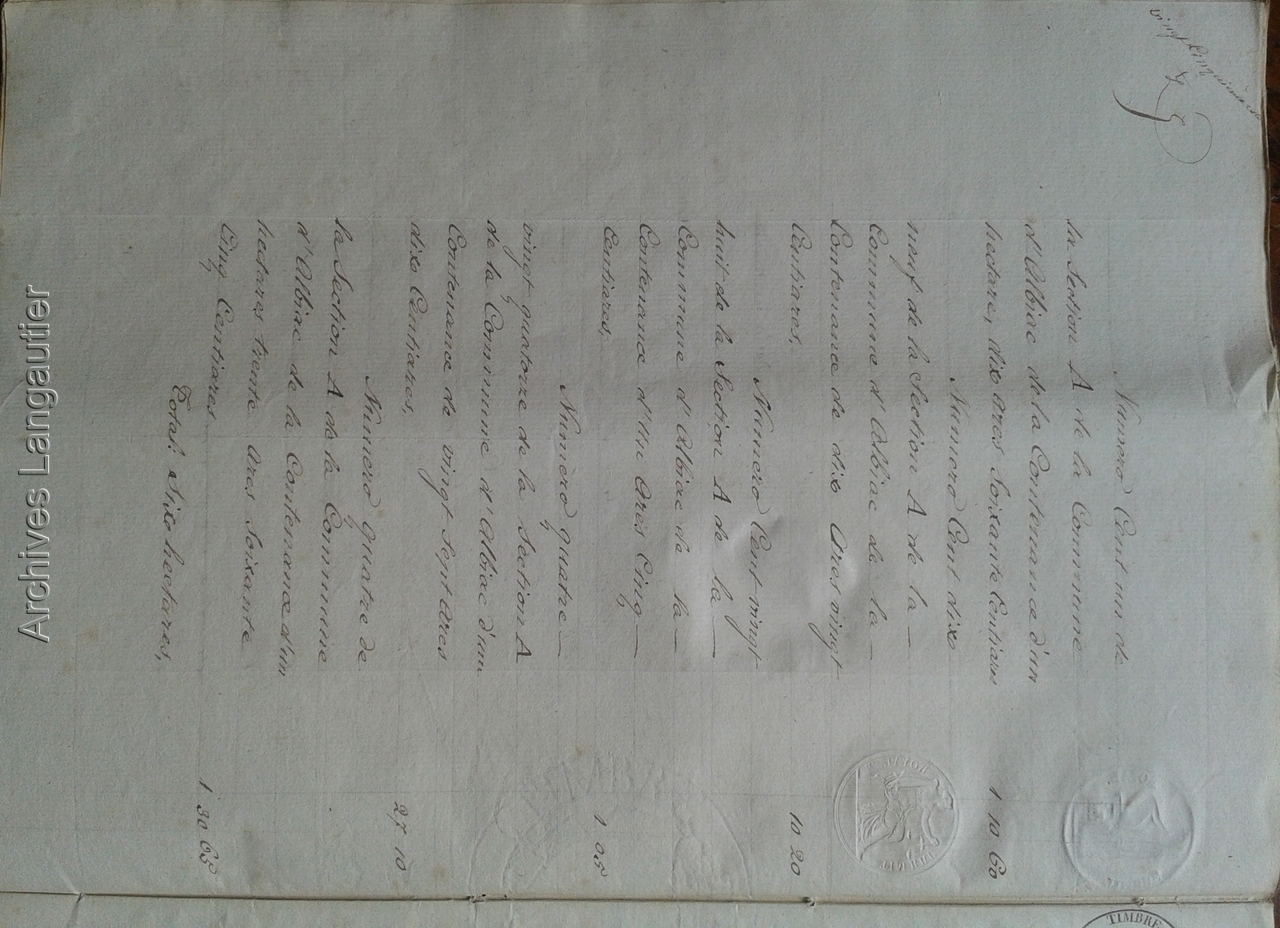 vingt cinquième
Numero Cent un de
la Section A de la Commune
d'Albiac de la Contenance d'un
hectare, dix ares Soixante Centiares
1 10 60
Numero Cent dix
neuf de la Section A de la —
Commune d'Albiac de la —
Contenance de dix Ares vingt
Centiares.
10 20
Numero Cent vingt
huit de la Section A de la —
Commune d'Albiac de la —
Contenance d'Un Ares Cinq —
Centiares,
1 05
Numèro quatre —
vingt quatorze de la Section A
de la Commune d'Albiac d'une
Contenance de vingt Sept Ares
dix Centiares,
27 10
Numero quatre de
la Section A de la Commune
d'Albiac de la Contenance d'un
hectares trente Ares Soixante
Cinq Centiares
1 30 65
Total: Six hectares,
TIMBRE
Archives Langautier